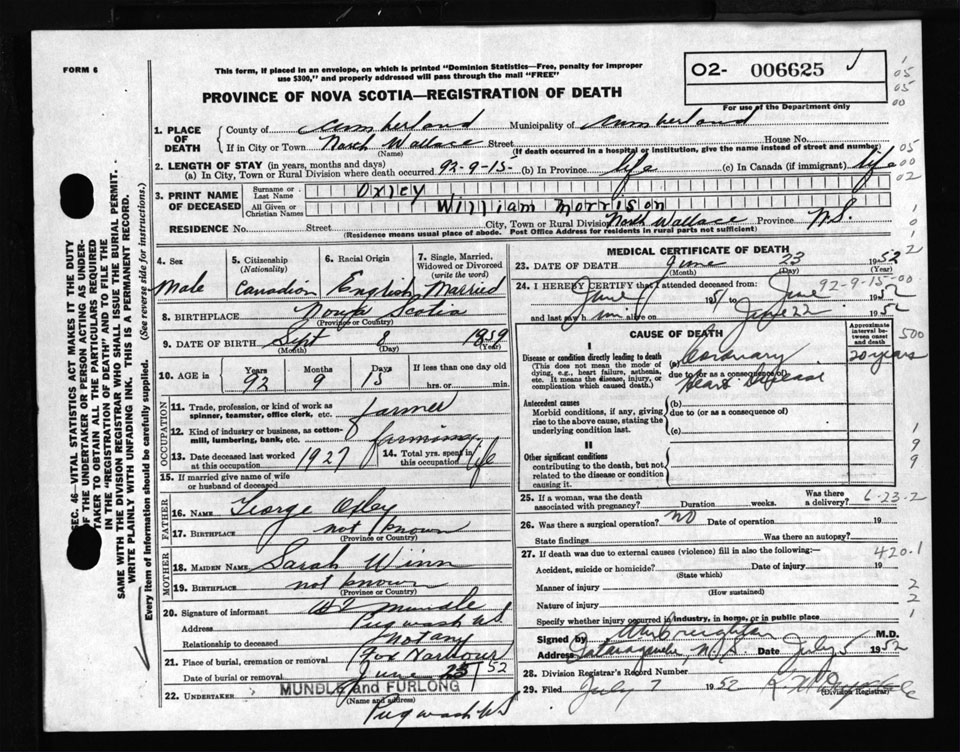 FORM 6
This form, if placed in an envelope, on which is printed "Dominion Statistics—Free, penalty for improper
use $300," and properly addressed will pass through the mail "FREE"
O2- 006625
PROVINCE OF NOVA SCOTIA—REGISTRATION OF DEATH
For use of the Department only
1. PLACE OF DEATH { County of Cumberland Municipality of Cumberland
If in City or Town North Wallace Street House No.
(Name) (If death occurred in a hospital or institution, give the name instead of street and number)
2. LENGTH OF STAY (in years, months and days)
(a) In City, Town or Rural Division where death occurred 92-9-15- (b) In Province life (c) In Canada (if immigrant) life
3. PRINT NAME OF DECEASED { Surname or Last Name Oxley
All Given or Christian Names William Morrison
RESIDENCE No. Street City, Town or Rural Division North Wallace Province N.S.
(Residence means usual place of abode. Post Office Address for residents in rural parts not sufficient)
4. Sex Male
5. Citizenship (Nationality) Canadian
6. Racial Origin English
7. Single, Married, Widowed or Divorced (write the word) Married
8. BIRTHPLACE Nova Scotia
(Province or Country)
9. DATE OF BIRTH Sept 8 1859
(Month) (Day) (Year)
10. AGE in Years 92 Months 9 Days 15 If less than one day old hrs. or min.
OCCUPATION
11. Trade, profession, or kind of work as spinner, teamster, office clerk, etc. farmer
12. Kind of industry or business, as cotton-mill, lumbering, bank, etc. farming
13. Date deceased last worked at this occupation 1927
14. Total yrs. spent in this occupation life
15. If married give name of wife or husband of deceased
FATHER
16. NAME George Oxley
17. BIRTHPLACE not known
(Province or Country)
MOTHER
18. MAIDEN NAME Sarah Winn
19. BIRTHPLACE not known
(Province or Country)
20. Signature of informant Mundle
Address Pugwash NS
Relationship to deceased Notary
21. Place of burial, cremation or removal Fox Harbour
Date of burial or removal June 25/52
22. UNDERTAKER MUNDLE and FURLONG
(Name and address)
Pugwash NS
MEDICAL CERTIFICATE OF DEATH
23. DATE OF DEATH June 23 1952
(Month) (Day) (Year)
24. I HEREBY CERTIFY that I attended deceased from: 92-9-15-00
June 1951 to June 1952
and last saw him alive on June 22 1952
CAUSE OF DEATH
Approximate interval between onset and death
I
Disease or condition directly leading to death
(This does not mean the mode of dying, e.g., heart failure, asthenia, etc. It means the disease, injury, or complication which caused death.)
(a) Coronary 20 years
due to (or as a consequence of)
Heart Disease
Antecedent causes
Morbid conditions, if any, giving rise to the above cause, stating the underlying condition last.
(b)
due to (or as a consequence of)
(c)
II
Other significant conditions
contributing to the death, but not related to the disease or condition causing it.
25. If a woman, was the death associated with pregnancy? Duration weeks. Was there a delivery? 6-23-2
26. Was there a surgical operation? NO Date of operation 19
State findings Was there an autopsy?
27. If death was due to external causes (violence) fill in also the following:— 420.1
Accident, suicide or homicide? Date of injury 19
(State which)
Manner of injury
(How sustained)
Nature of injury
Specify whether injury occurred in industry, in home, or in public place
Signed by Creighton M.D.
Address Tatamagouche, N.S. Date July 5 1952
28. Division Registrar's Record Number
29. Filed July 7 1952
(Division Registrar)
SEC. 46—VITAL STATISTICS ACT MAKES IT THE DUTY
OF THE UNDERTAKER OR PERSON ACTING AS UNDER-
TAKER TO OBTAIN ALL THE PARTICULARS REQUIRED
IN THE "REGISTRATION OF DEATH" AND TO FILE THE
SAME WITH THE DIVISION REGISTRAR WHO SHALL ISSUE THE BURIAL PERMIT.
WRITE PLAINLY WITH UNFADING INK. THIS IS A PERMANENT RECORD.
Every item of Information should be carefully supplied. (See reverse side for instructions.)